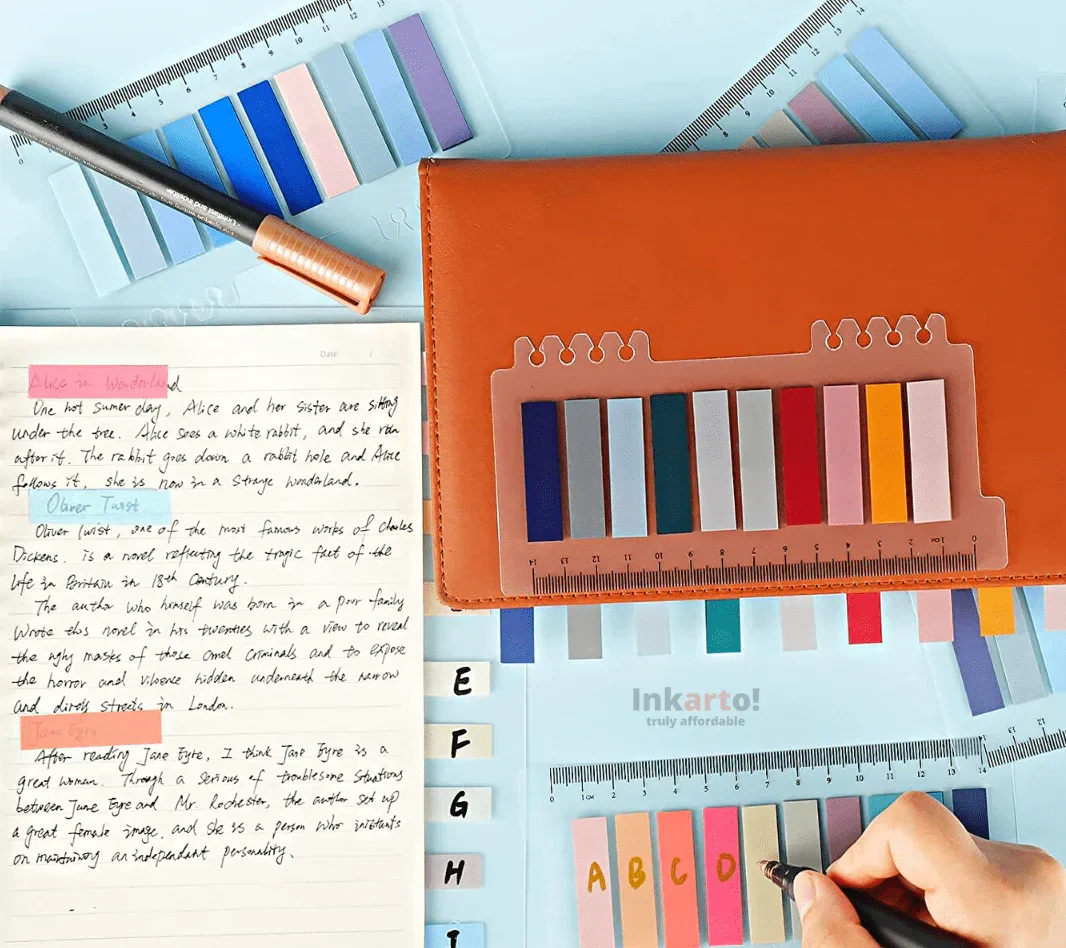 0 1 2 3 4 5 6 7 8 9 10 11 12 13
9 10 11 12 13 14
Date /
Alice in Wonderland
One hot sumer day, Alice and her sister are sitting
under the tree. Alice sees a white rabbit, and she run
after it. The rabbit goes down a rabbit hole and Alice
follows it, she is now in a strange wonderland.
Oliver Twist
Oliver Twist, one of the most famous works of Charles
Dickens. is a novel reflecting the tragic fact of the
life in Britain in 18th Century.
The author who himself was born in a poor family
wrote this novel in his twenties with a view to reveal
the ugly masks of those cruel criminals and to expose
the horror and vilvence hidden underneath the narrow
and streets in London.
Jane Eyre
After reading Jane Eyre, I think Jane Eyre is a
great woman. Through a serious of troublesome situations
between Jane Eyre and Mr. Rochester, the author set up
a great female image. and she is a person who
on an independent personality.
14 13 12 11 10 9 8 7 6 5 4 3 2 1CM 0
E
F
G
H
I
Inkarto!
truly affordable
0 1CM 2 3 4 5 6 7 8 9 10 11 12 13 14
12
A B C D